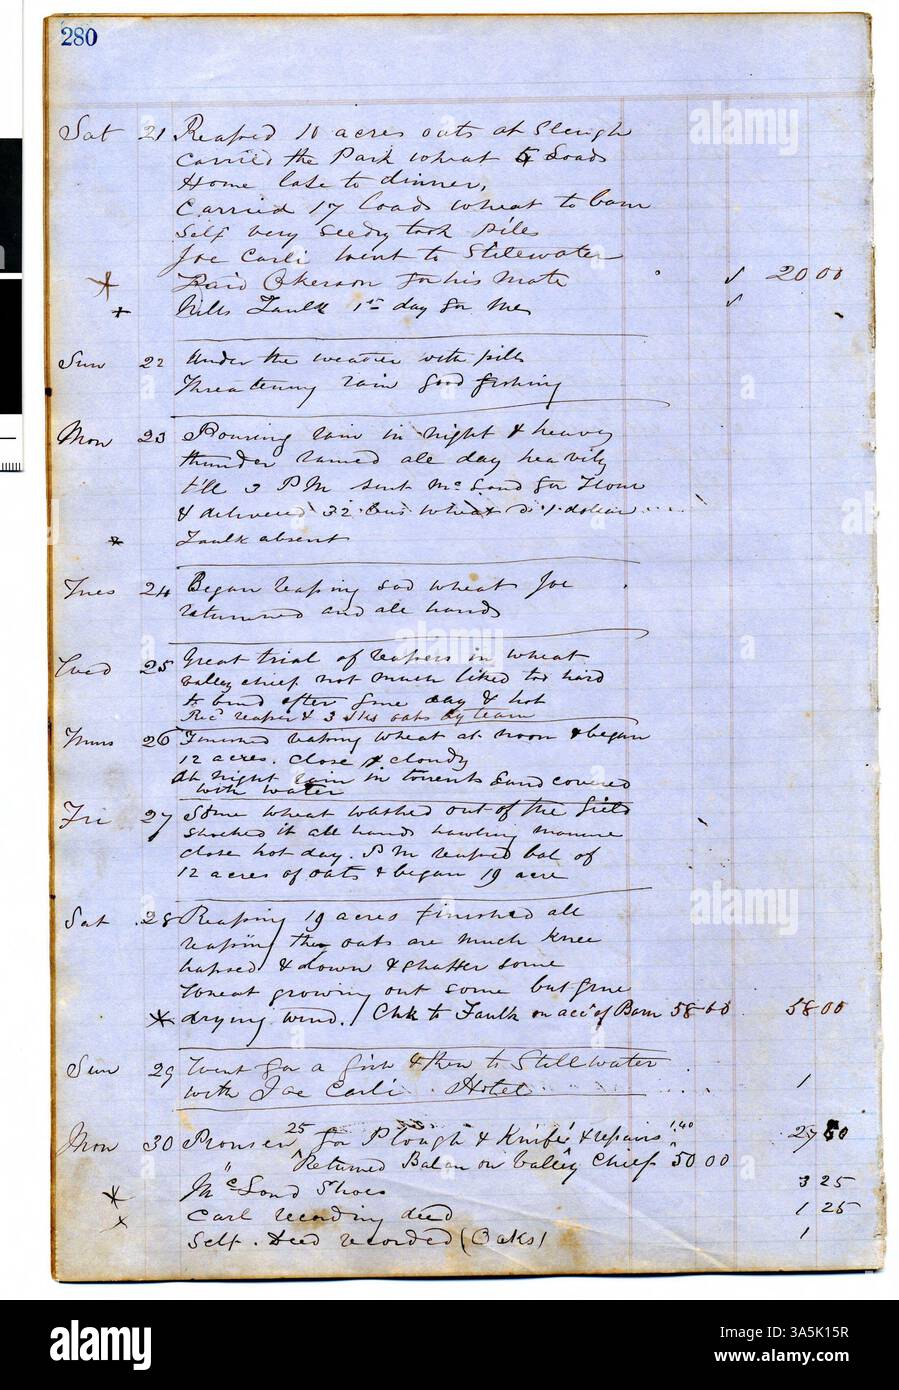 280
Sat 21 Reaped 10 acres oats at Sleigh
Carried the Park wheat 5 Loads
Home late to dinner,
Carried 17 loads wheat to barn
Self very seedy took pills
Joe Carli went to Stillwater
Paid Okerson for his Mate 20 00
Nills Faulk 1st day for me
Sun 22 Under the weather with pills
Threatening rain good fishing
Mon 23 Pouring rain in night & heavy
thunder rained all day heavily
till 3 PM sent Mc Lond for Flour
& delivered 32 bus wheat 1 dollar
Faulk absent
Tues 24 Began reaping sod wheat Joe
returned and all hands
Wed 25 Great trial of reapers in wheat
valley chief not much liked too hard
to bind after fine day & hot
Recd reaper & 3 sks oats by team
Thurs 26 Finished wheat at noon & began
12 acres. close & cloudy
At night rain in torrents Land covered
with water
Fri 27 Some wheat washed out of the field
shocked it all hands hawling manure
close hot day. P M reaped bal of
12 acres of oats & began 19 acre
Sat 28 Reaping 19 acres finished all
reaping the oats are much knee
& down & shatter some
Wheat growing out some but fine
drying wind. / Chk to Faulk on acct of Barn 58 00 58 00
Sun 29 Went for a fish & then to Stillwater
with Joe Carli. Hotel 1
Mon 30 25 for Plough & Knife & repairs 1.40 27 50
Returned Balan on Valley Chief 50 00
Mc Lond Shoes 3 25
Carl recording deed 1 25
Self. Deed recorded (Oaks) 1
alamy
alamy
Image ID: 3A5K15R
www.alamy.com